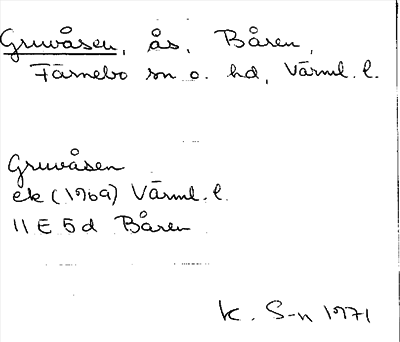 Gruvåsen, ås, Båren,
Färnebo sn o. hd, Värml. l.
Gruvåsen
ek (1969) Värml. l.
11 E 5 d Båren
K. S-n 1971